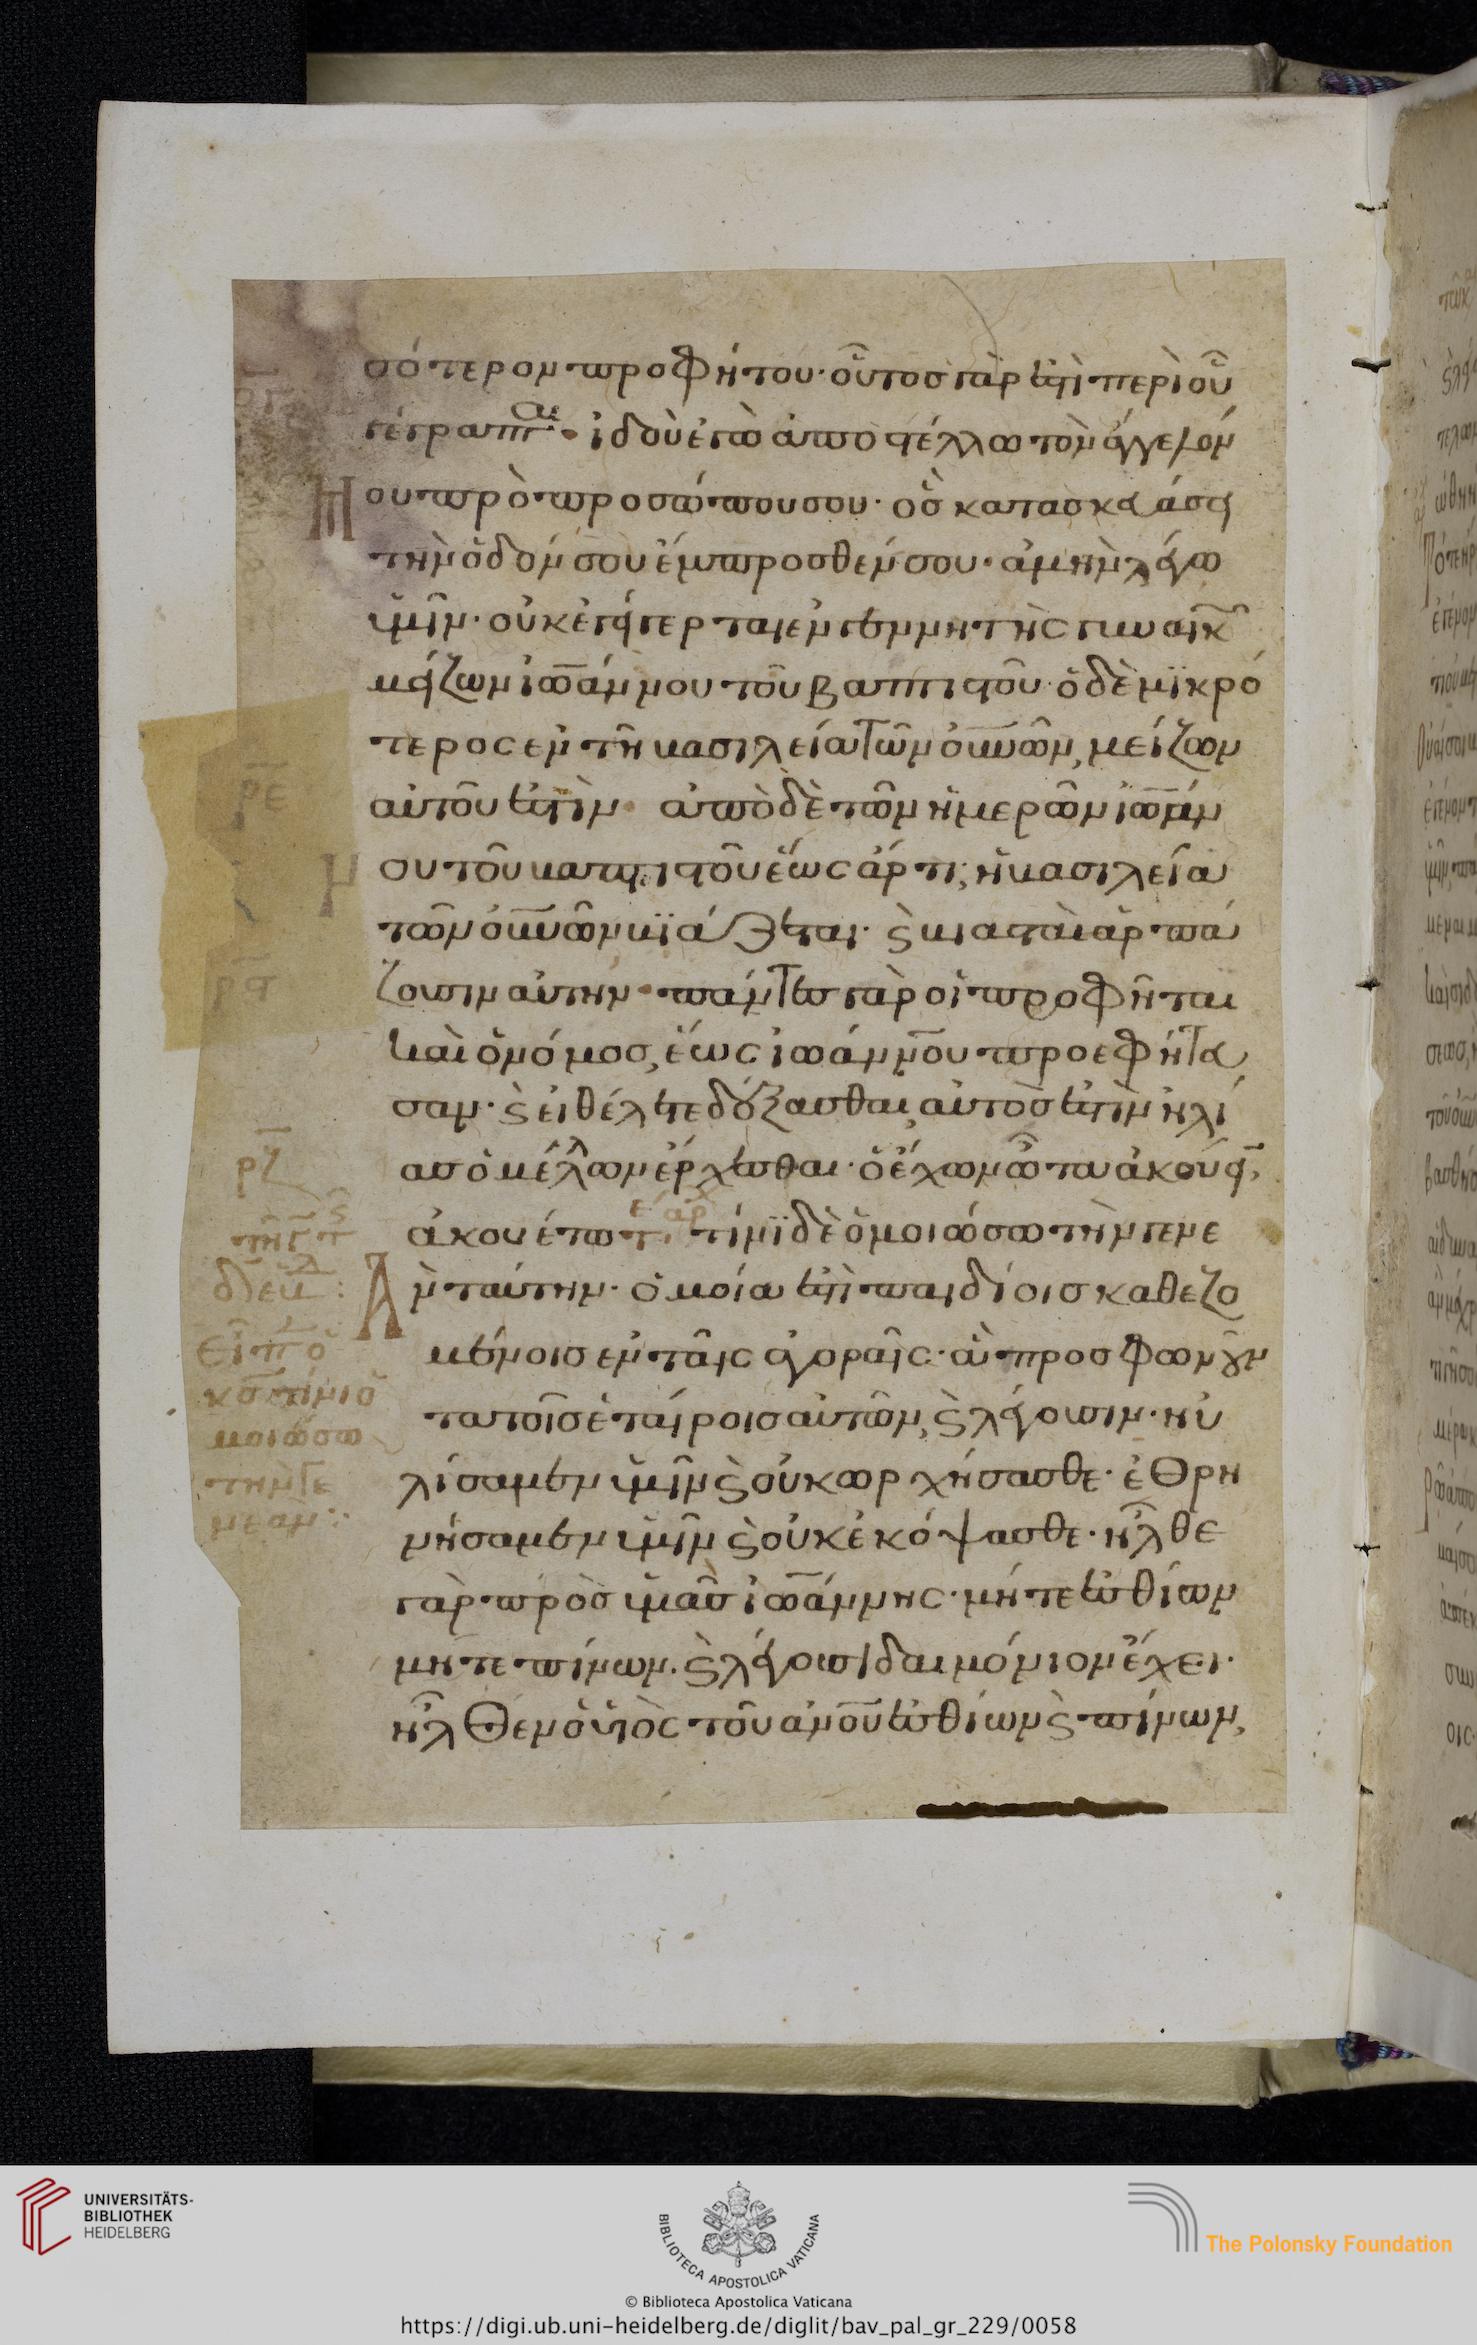 σότερον προφήτου· οὗτοσ γάρ ἐστι περὶ οὗ
γέγραπται· ἰδοὺ ἐγὼ ἀποστέλλω τὸν ἄγγελόν
μου πρὸ προσώπου σου· ὃσ κατασκευάσει
τὴν ὁδόν σου ἔμπροσθέν σου· ἀμὴν λέγω
ὑμῖν· οὐκ ἐγήγερται ἐν γεννητῆς γυναικῶν
μείζων ἰωάννου τοῦ βαπτιστοῦ· ὁ δὲ μϊκρό
τερος ἐν τῆ βασιλεία τῶν οὐνῶν, μείζων
αὐτοῦ ἐστὶν· ἀπὸ δὲ τῶν ἡμερῶν ἰωάνν
ου τοῦ βαπτιστοῦ ἕως ἄρτι, ἡ βασιλεία
τῶν οὐνῶν βϊάζεται· ϗ βιασταὶ ἁρπά
ζουσιν αὐτην· πάντεσ γὰρ οἱ προφῆται
καὶ ὁ νόμοσ, ἕως ἰωάννου προεφήτευ
σαν· ϗ εἰ θέλετε δέξασθαι, αὐτόσ ἐστὶν ἠλί
ασ ὁ μέλλων ἔρχεσθαι· ὁ ἔχων ὦτα ἀκούειν,
ἀκουέτω τίνϊ δὲ ὁμοιώσω τὴν γενε
ὰν ταύτην· ὁμοία ἐστὶ παιδίοισ καθεζο
μένοισ ἐν ταῖς ἀγοραῖς· ἃ προσφωνοῦν
τα τοῖσ ἑταίροισ αὐτῶν, ϗ λέγουσιν· ηὐ
λίσαμεν ὑμῖν ϗ οὐκ ωρχήσασθε· ἐθρη
νήσαμεν ὑμῖν ϗ οὐκ ἐκόψασθε· ἦλθε
γὰρ πρὸσ ὑμᾶσ ἰωάννης· μήτε ἐσθίων
μήτε πίνων· ϗ λέγουσι δαιμόνιον ἔχει·
ἦλθεν ὁ ὑιὸς τοῦ ἀνου ἐσθίων ϗ πίνων,
ρε
ρϛ
ρζ
εἶπ ὁ
κσ τίνι ὁ
μοιώσω
την γε
νεαν:
UNIVERSITÄTS-
BIBLIOTHEK
HEIDELBERG
BIBLIOTECA APOSTOLICA VATICANA
The Polonsky Foundation
© Biblioteca Apostolica Vaticana
https://digi.ub.uni-heidelberg.de/diglit/bav_pal_gr_229/0058